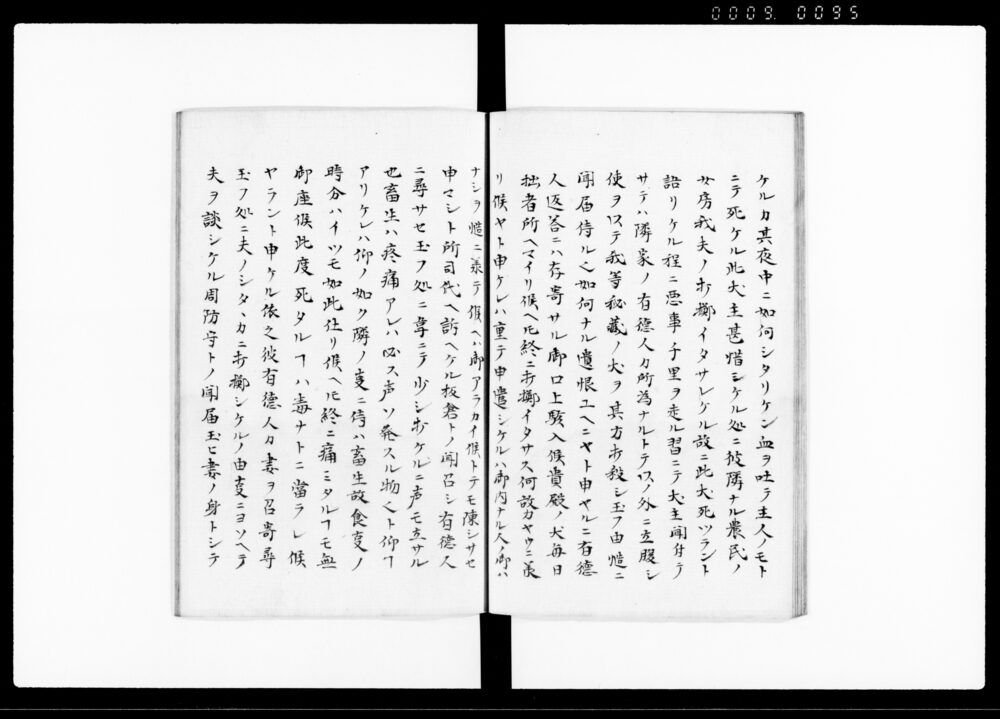 0009. 0095
ケルカ其夜中ニ如何シタリケン血ヲ吐テ主人ノモト
ニテ死ケル此犬主甚惜シケル処ニ彼隣ナル農民ノ
女房我夫ノ打擲イタサレケル故ニ此犬死ツラント
語リケル程ニ悪事千里ヲ走ル習ニテ犬主聞付テ
サテハ隣家ノ有徳人カ所為ナルトテ以ノ外ニ立腹シ
使ヲ以テ我等秘蔵ノ犬ヲ其方打殺シ玉フ由慥ニ
聞届侍ル也如何ナル遺恨ユヘニヤト申ヤルニ有徳
人返答ニハ存寄サル御口上駭入候貴殿ノ犬毎日
拙者所ヘマイリ候ヘ𪜈終ニ打擲イタサス何故カヤウニ義
リ候ヤト申ケレハ重テ申遣シケルハ御内ナル人ノ御ハ
ナシヲ慥ニ義テ候ヘハ御アラカイ候トテモ陳シサセ
申マシト所司代ヘ訴ヘケル板倉トノ聞召シ有徳人
ニ尋サセ玉フ処ニ韋ニテ少シ打ケルニ声モ立サル
也畜生ハ疼痛アレハ必ス声ソ発スル物也ト仰ヿ
アリケレハ仰ノ如ク隣ノ㕝ニ侍ハ畜生故食㕝ノ
時分ハイツモ如此仕リ候ヘ𪜈終ニ痛ミタルヿモ無
御座候此度死タルヿハ毒ナトニ當ラレ候
ヤラント申ケル依之彼有徳人カ妻ヲ召寄尋
玉フ処ニ夫ノシタヽカニ打擲シケルノ由㕝ニヨソヘテ
夫ヲ談シケル周防守トノ聞届玉ヒ妻ノ身トシテ